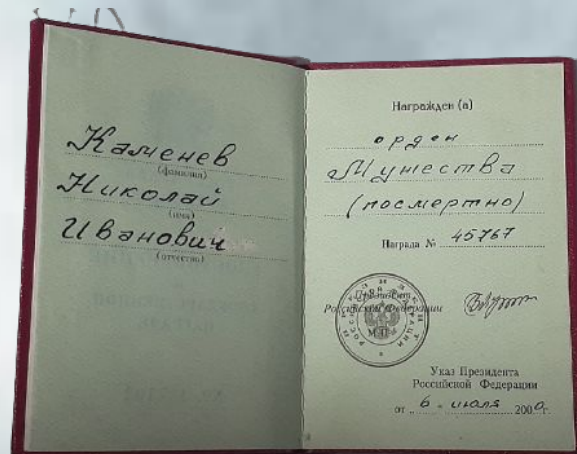 Каменев
(фамилия)
Николай
(имя)
Иванович
(отчество)
Награжден (а)
орден
Мужества
(посмертно)
Награда № 45767
Президент
Российской Федерации
М.П.
Указ Президента
Российской Федерации
от „ 6 „ июля 2000г.